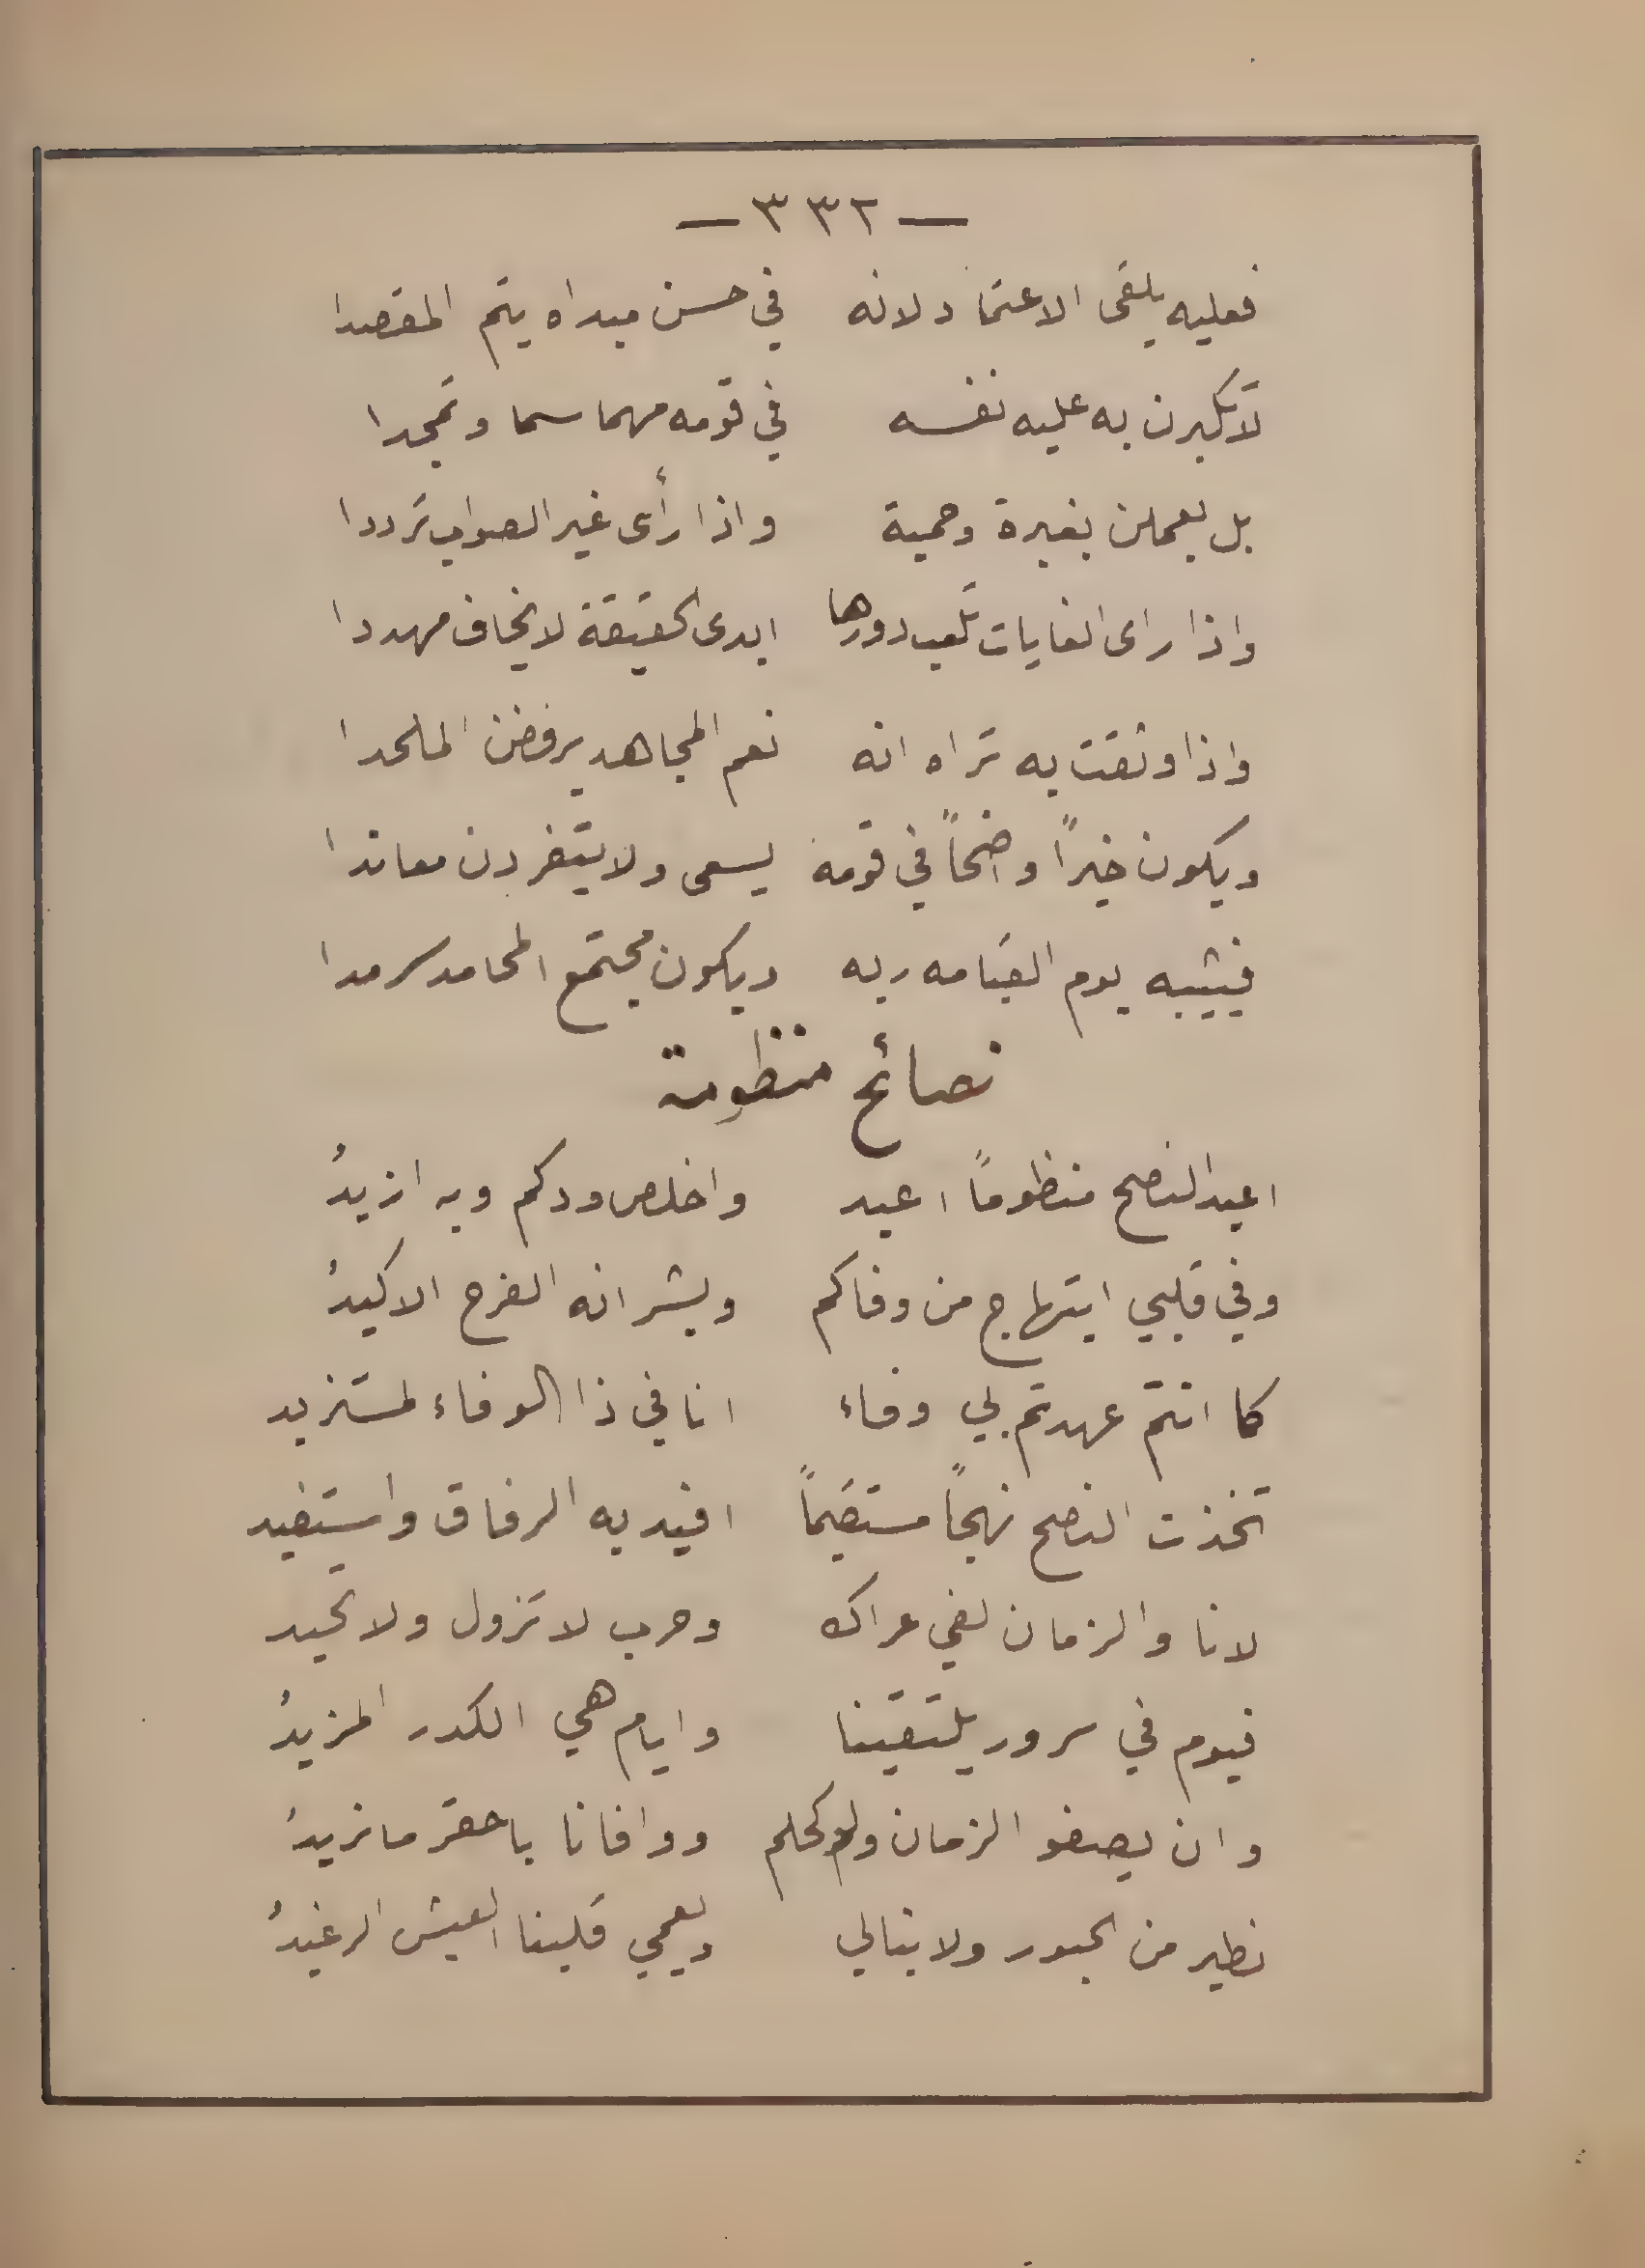 — ٣٣٢ —
فعليه يلقى الاعتماد لانه في حسن مبداه يتم المقصدا
لا تكبرن به عليه نفسه في قومه مهما سما وتمجدا
بل يعملن بغيرة وحمية واذا رأى غير الصواب ترددا
واذا راى الغايات تلعب دورها ابدى الحقيقة لا يخاف مهددا
واذا وثقت به تراه انه نعم المجاهد يرفض الملحدا
ويكون خيراً واضحاً في قومه يسعى ولا يتفردن معاندا
فيثيبه يوم القيامه ربه ويكون مجتمع المحامد سرمدا
نصائح منظومة
اعيد النصح منظوماً اعيد واخلص ودكم وبه ازيدُ
وفي قلبي ابتهاج من وفاكم وبشر انه الفرح الاكيدُ
كما انتم عهدتم بي وفاء انا في ذا الوفاء لمستزيد
تخذت النصح نهجاً مستقيماً افيد به الرفاق واستفيد
لانا والزمان لفي عراك وحرب لا تزول ولا تحيد
فيوم في سرور يلتقينا وايام هي الكدر المزيدُ
وان يصفو الزمان ولو كحلم ووافانا باحقر ما نريدُ
نطير من الحبور ولا نبالي ويعمي قلبنا العيش الرغيدُ